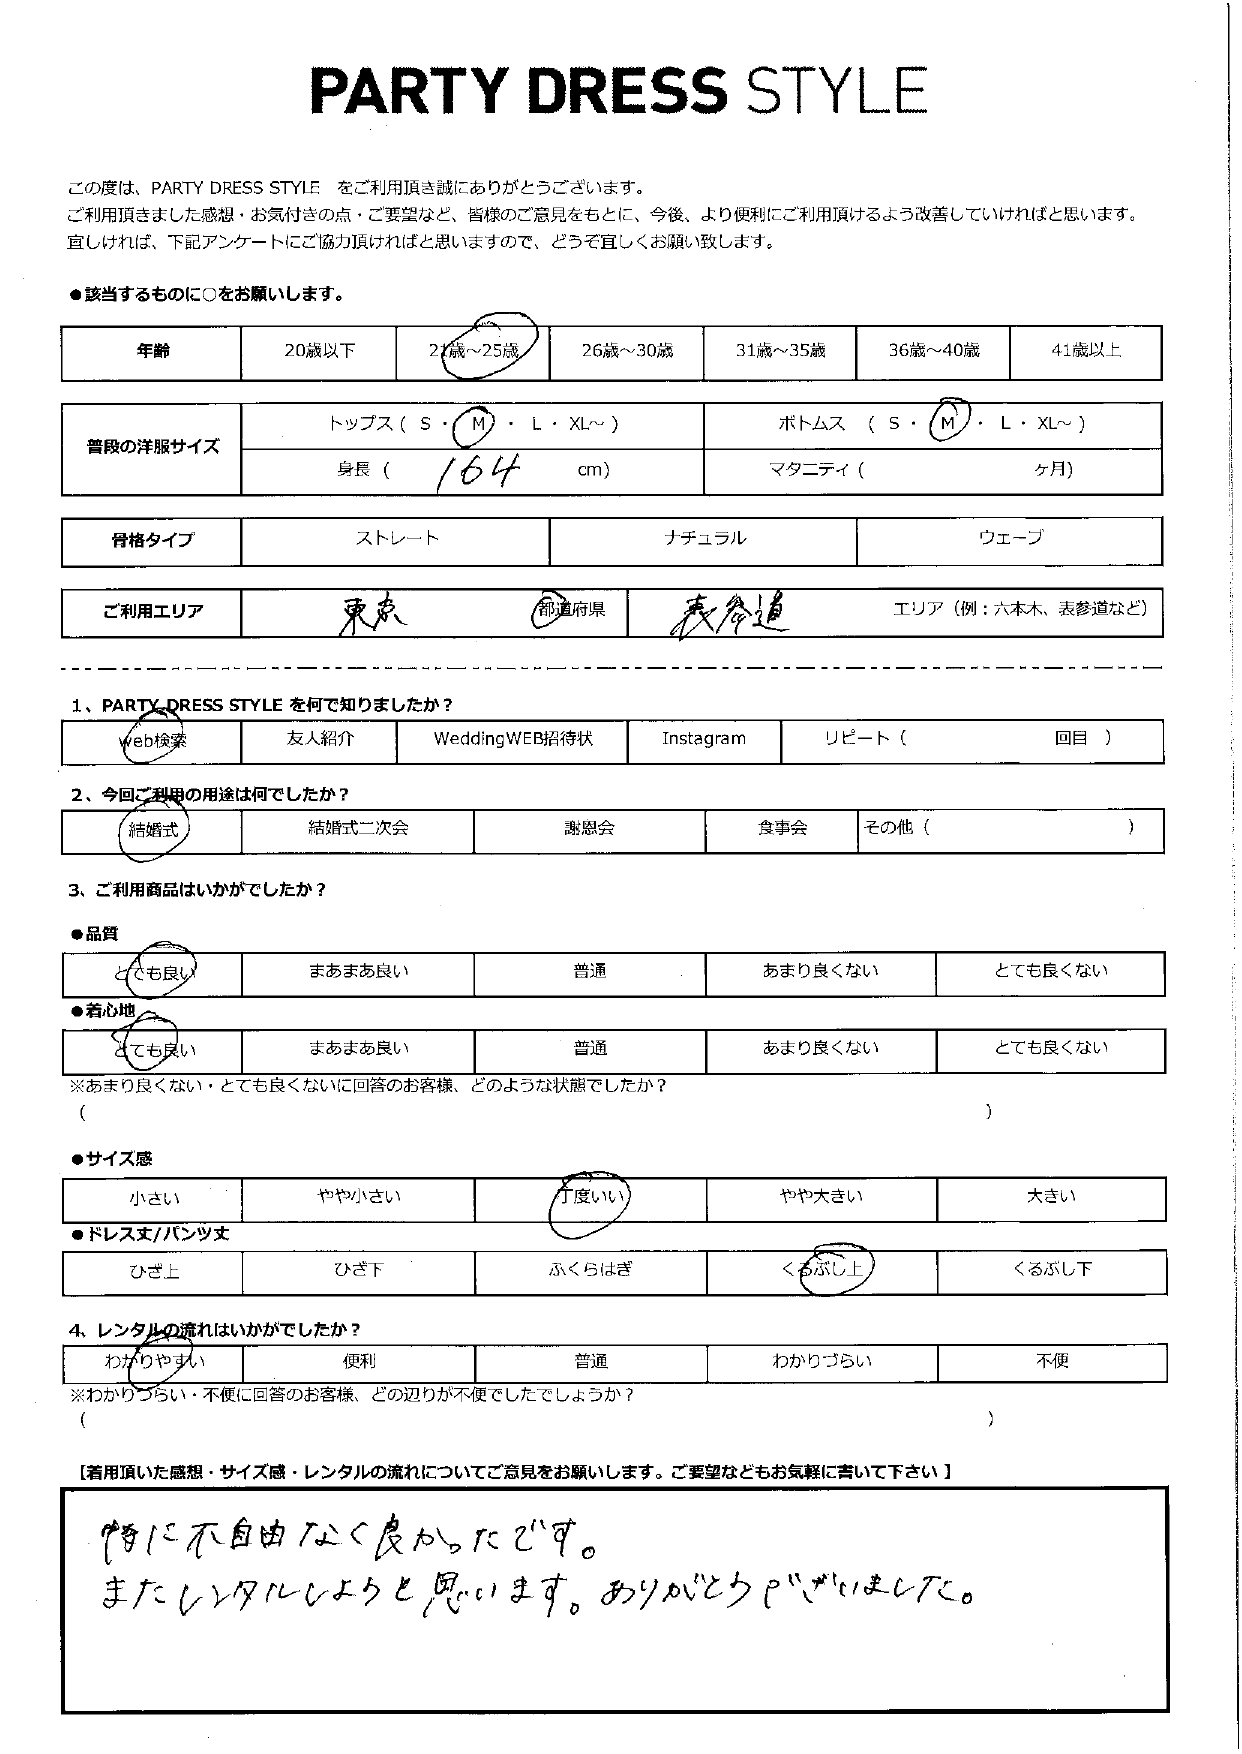 PARTY DRESS STYLE
この度は、PARTY DRESS STYLE をご利用頂き誠にありがとうございます。
ご利用頂きました感想・お気付きの点・ご要望など、皆様のご意見をもとに、今後、より便利にご利用頂けるよう改善していければと思います。
宜しければ、下記アンケートにご協力頂ければと思いますので、どうぞ宜しくお願い致します。
●該当するものに○をお願いします。
年齢 20歳以下 21歳～25歳 26歳～30歳 31歳～35歳 36歳～40歳 41歳以上
普段の洋服サイズ
トップス ( S ・ M ・ L ・ XL～ ) ボトムス ( S ・ M ・ L ・ XL～ )
身長 ( 164 cm) マタニティ ( ヶ月)
骨格タイプ ストレート ナチュラル ウェーブ
ご利用エリア 東京 都道府県 表参道 エリア（例：六本木、表参道など）
1、PARTY DRESS STYLE を何で知りましたか？
web検索 友人紹介 WeddingWEB招待状 Instagram リピート（ 回目 ）
2、今回ご利用の用途は何でしたか？
結婚式 結婚式二次会 謝恩会 食事会 その他（ ）
3、ご利用商品はいかがでしたか？
●品質
とても良い まあまあ良い 普通 あまり良くない とても良くない
●着心地
とても良い まあまあ良い 普通 あまり良くない とても良くない
※あまり良くない・とても良くないに回答のお客様、どのような状態でしたか？
( )
●サイズ感
小さい やや小さい 丁度いい やや大きい 大きい
●ドレス丈/パンツ丈
ひざ上 ひざ下 ふくらはぎ くるぶし上 くるぶし下
4、レンタルの流れはいかがでしたか？
わかりやすい 便利 普通 わかりづらい 不便
※わかりづらい・不便に回答のお客様、どの辺りが不便でしたでしょうか？
( )
[着用頂いた感想・サイズ感・レンタルの流れについてご意見をお願いします。ご要望などもお気軽に書いて下さい ]
特に不自由なく良かったです。
またレンタルしようと思います。ありがとうございました。